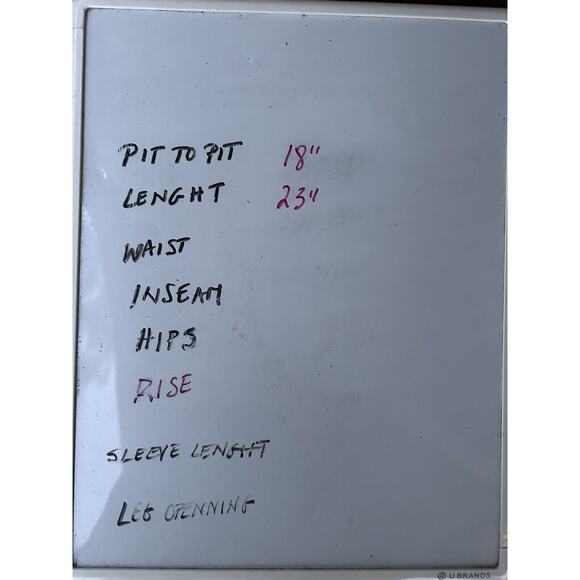 PIT TO PIT 18"
LENGHT 23"
WAIST
INSEAM
HIPS
RISE
SLEEVE LENGHT
LEG OPENNING
U BRANDS